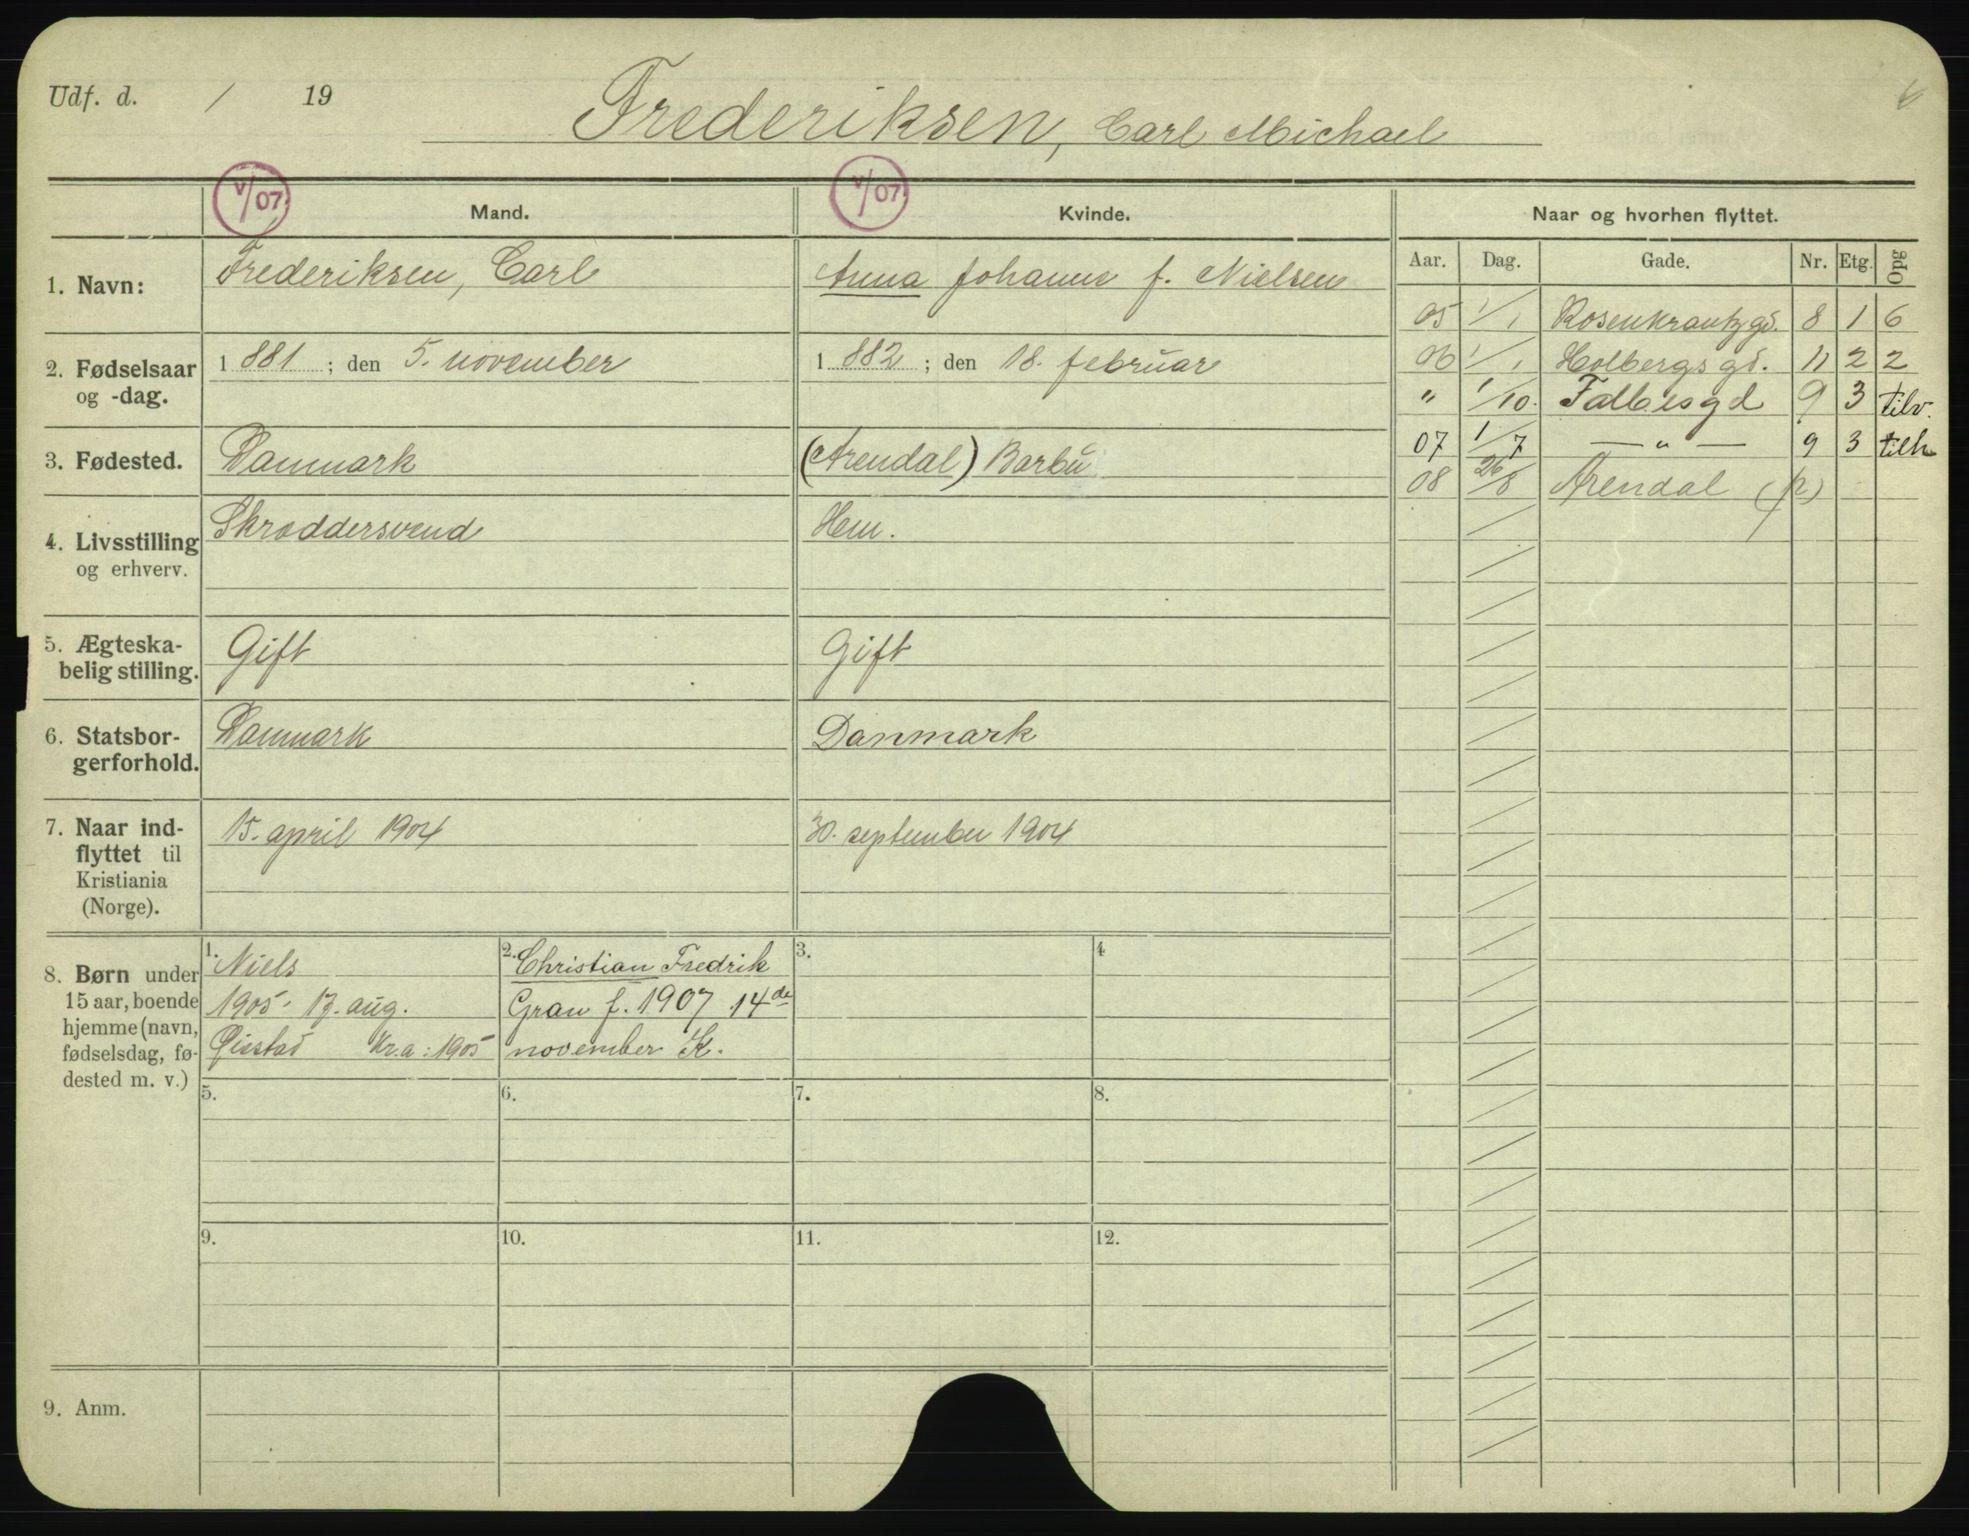 Udf. d. / 19
Frederiksen, Carl Michael
V/07. Mand.
V/07. Kvinde.
Naar og hvorhen flyttet.
Aar. Dag. Gade. Nr. Etg. Opg
1. Navn: Frederiksen, Carl
Anna Johanne f. Nielsen
2. Fødselsaar og -dag. 1881; den 5. november
1882; den 18. februar
3. Fødested. Danmark
(Arendal) Barbu
4. Livsstilling og erhverv. Skræddersvend
Hem.
5. Ægteska-
belig stilling. Gift
Gift
6. Statsbor-
gerforhold. Danmark
Danmark
7. Naar ind-
flyttet til
Kristiania
(Norge). 15. april 1904
30. september 1904
05 1/1 Rosenkrantzgd. 8 1 6
06 1/1 Holbergsgd. 11 2 2
" 1/10. Falbesgd 9 3 tilv.
07 1/7 — " — 9 3 tilh
08 26/8 Arendal (p)
8. Børn under
15 aar, boende
hjemme (navn,
fødselsdag, fø-
dested m. v.)
1. Niels
1905. 17. aug.
Øiestad Kr.a: 1905
2. Christian Fredrik
Gran f. 1907 14de
november K.
3.
4
5.
6.
7.
8.
9.
10.
11.
12.
9. Anm.